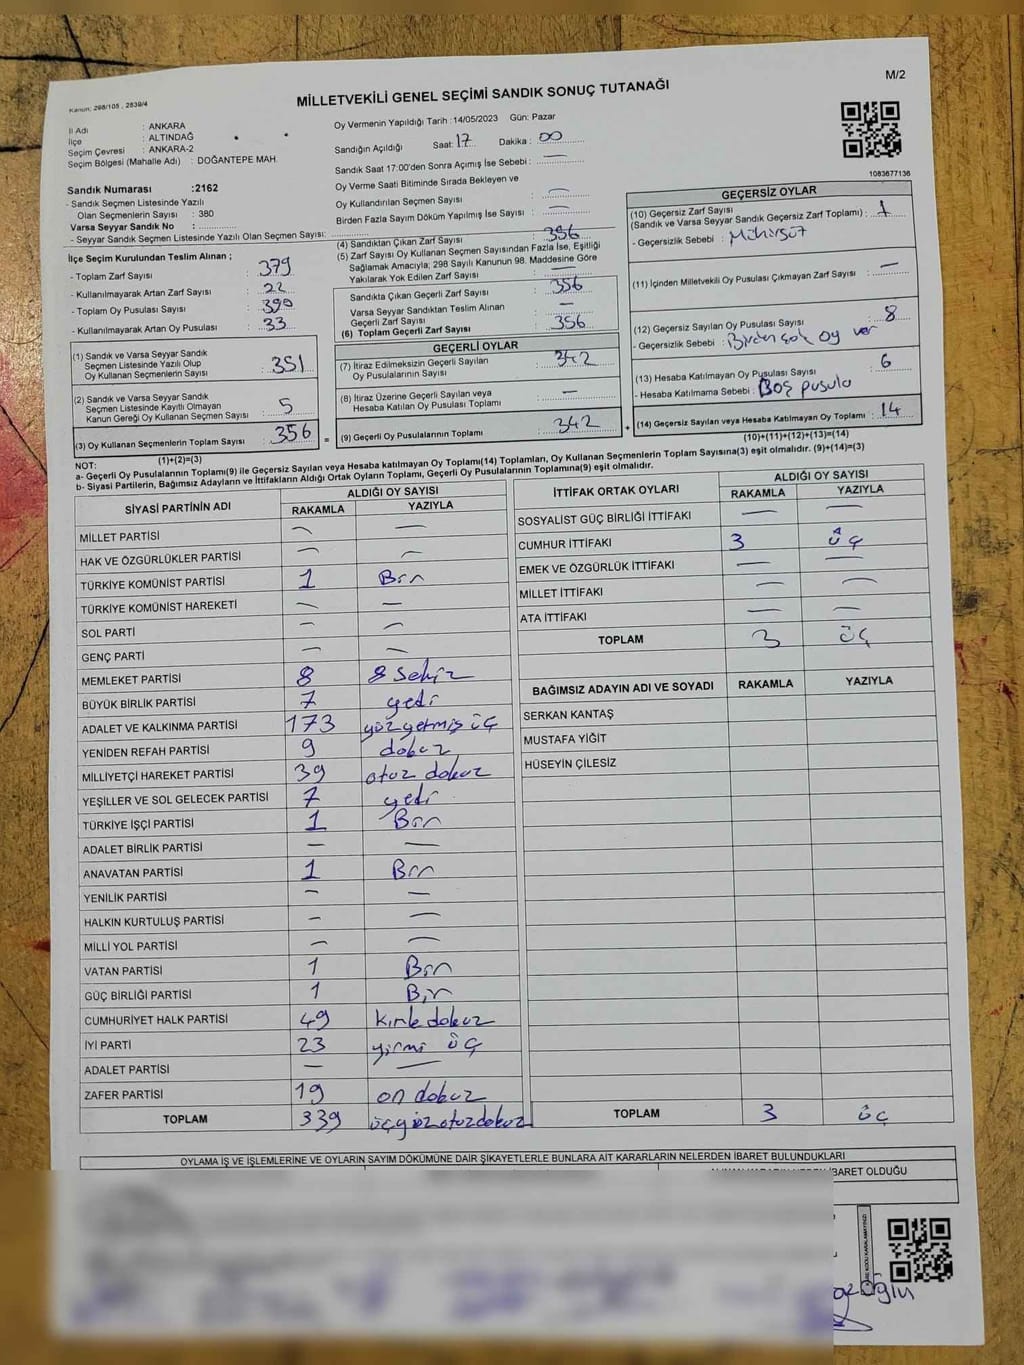 M/2
Kanun: 298/105 , 2839/4
MİLLETVEKİLİ GENEL SEÇİMİ SANDIK SONUÇ TUTANAĞI
İl Adı : ANKARA
İlçe : ALTINDAĞ
Seçim Çevresi : ANKARA-2
Seçim Bölgesi (Mahalle Adı) : DOĞANTEPE MAH.
Sandık Numarası :2162
- Sandık Seçmen Listesinde Yazılı
Olan Seçmenlerin Sayısı : 380
Varsa Seyyar Sandık No :
- Seyyar Sandık Seçmen Listesinde Yazılı Olan Seçmen Sayısı:
Oy Vermenin Yapıldığı Tarih :14/05/2023 Gün: Pazar
Sandığın Açıldığı Saat: 17 Dakika : 00
Sandık Saat 17:00'den Sonra Açımış İse Sebebi : —
Oy Verme Saati Bitiminde Sırada Bekleyen ve
Oy Kullandırılan Seçmen Sayısı : —
Birden Fazla Sayım Döküm Yapılmış İse Sayısı : —
1083677136
İlçe Seçim Kurulundan Teslim Alınan ;
- Toplam Zarf Sayısı : 379
- Kullanılmayarak Artan Zarf Sayısı : 22
- Toplam Oy Pusulası : 390
- Kullanılmayarak Artan Oy Pusulası : 33
(1) Sandık ve Varsa Seyyar Sandık
Seçmen Listesinde Yazılı Olup
Oy Kullanan Seçmenlerin Sayısı : 351
(2) Sandık ve Varsa Seyyar Sandık
Seçmen Listesinde Kayıtlı Olmayan
Kanun Gereği Oy Kullanan Seçmen Sayısı : 5
(3) Oy Kullanan Seçmenlerin Toplam Sayısı : 356 =
(1)+(2)=(3)
(4) Sandıktan Çıkan Zarf Sayısı : 356
(5) Zarf Sayısı Oy Kullanan Seçmen Sayısından Fazla İse, Eşitliği
Sağlamak Amacıyla; 298 Sayılı Kanunun 98. Maddesine Göre
Yakılarak Yok Edilen Zarf Sayısı : —
Sandıkta Çıkan Geçerli Zarf Sayısı : 356
Varsa Seyyar Sandıktan Teslim Alınan
Geçerli Zarf Sayısı : —
(6) Toplam Geçerli Zarf Sayısı : 356
GEÇERLİ OYLAR
(7) İtiraz Edilmeksizin Geçerli Sayılan
Oy Pusulalarının Sayısı : 342
(8) İtiraz Üzerine Geçerli Sayılan veya
Hesaba Katılan Oy Pusulası Toplamı : —
(9) Geçerli Oy Pusulalarının Toplamı : 342 +
GEÇERSİZ OYLAR
(10) Geçersiz Zarf Sayısı
(Sandık ve Varsa Seyyar Sandık Geçersiz Zarf Toplamı) : 1
- Geçersizlik Sebebi : Mühürsüz
(11) İçinden Milletvekili Oy Pusulası Çıkmayan Zarf Sayısı : —
(12) Geçersiz Sayılan Oy Pusulası Sayısı : 8
- Geçersizlik Sebebi : Birden çok oy ver
(13) Hesaba Katılmayan Oy Pusulası Sayısı : 6
- Hesaba Katılmama Sebebi : Boş pusula
(14) Geçersiz Sayılan veya Hesaba Katılmayan Oy Toplamı : 14
(10)+(11)+(12)+(13)=(14)
NOT:
a- Geçerli Oy Pusulalarının Toplamı(9) ile Geçersiz Sayılan veya Hesaba katılmayan Oy Toplamı(14) Toplamları, Oy Kullanan Seçmenlerin Toplam Sayısına(3) eşit olmalıdır. (9)+(14)=(3)
b- Siyasi Partilerin, Bağımsız Adayların ve İttifakların Aldığı Ortak Oyların Toplamı, Geçerli Oy Pusulalarının Toplamına(9) eşit olmalıdır.
SİYASİ PARTİNİN ADI ALDIĞI OY SAYISI
RAKAMLA YAZIYLA
MİLLET PARTİSİ — —
HAK VE ÖZGÜRLÜKLER PARTİSİ — —
TÜRKİYE KOMÜNİST PARTİSİ 1 Bir
TÜRKİYE KOMÜNİST HAREKETİ — —
SOL PARTİ — —
GENÇ PARTİ — —
MEMLEKET PARTİSİ 8 8 sekiz
BÜYÜK BİRLİK PARTİSİ 7 yedi
ADALET VE KALKINMA PARTİSİ 173 yüzyetmiş üç
YENİDEN REFAH PARTİSİ 9 dokuz
MİLLİYETÇİ HAREKET PARTİSİ 39 otuz dokuz
YEŞİLLER VE SOL GELECEK PARTİSİ 7 yedi
TÜRKİYE İŞÇİ PARTİSİ 1 Bir
ADALET BİRLİK PARTİSİ — —
ANAVATAN PARTİSİ 1 Bir
YENİLİK PARTİSİ — —
HALKIN KURTULUŞ PARTİSİ — —
MİLLİ YOL PARTİSİ — —
VATAN PARTİSİ 1 Bir
GÜÇ BİRLİĞİ PARTİSİ 1 Bir
CUMHURİYET HALK PARTİSİ 49 kırk dokuz
İYİ PARTİ 23 yirmi üç
ADALET PARTİSİ — —
ZAFER PARTİSİ 19 on dokuz
TOPLAM 339 üçyüzotuzdokuz
İTTİFAK ORTAK OYLARI ALDIĞI OY SAYISI
RAKAMLA YAZIYLA
SOSYALİST GÜÇ BİRLİĞİ İTTİFAKI — —
CUMHUR İTTİFAKI 3 üç
EMEK VE ÖZGÜRLÜK İTTİFAKI — —
MİLLET İTTİFAKI — —
ATA İTTİFAKI — —
TOPLAM 3 üç
BAĞIMSIZ ADAYIN ADI VE SOYADI RAKAMLA YAZIYLA
SERKAN KANTAŞ
MUSTAFA YİĞİT
HÜSEYİN ÇİLESİZ
TOPLAM 3 üç
OYLAMA İŞ VE İŞLEMLERİNE VE OYLARIN SAYIM DÖKÜMÜNE DAİR ŞİKAYETLERLE BUNLARA AİT KARARLARIN NELERDEN İBARET BULUNDUKLARI
İBARET OLDUĞU